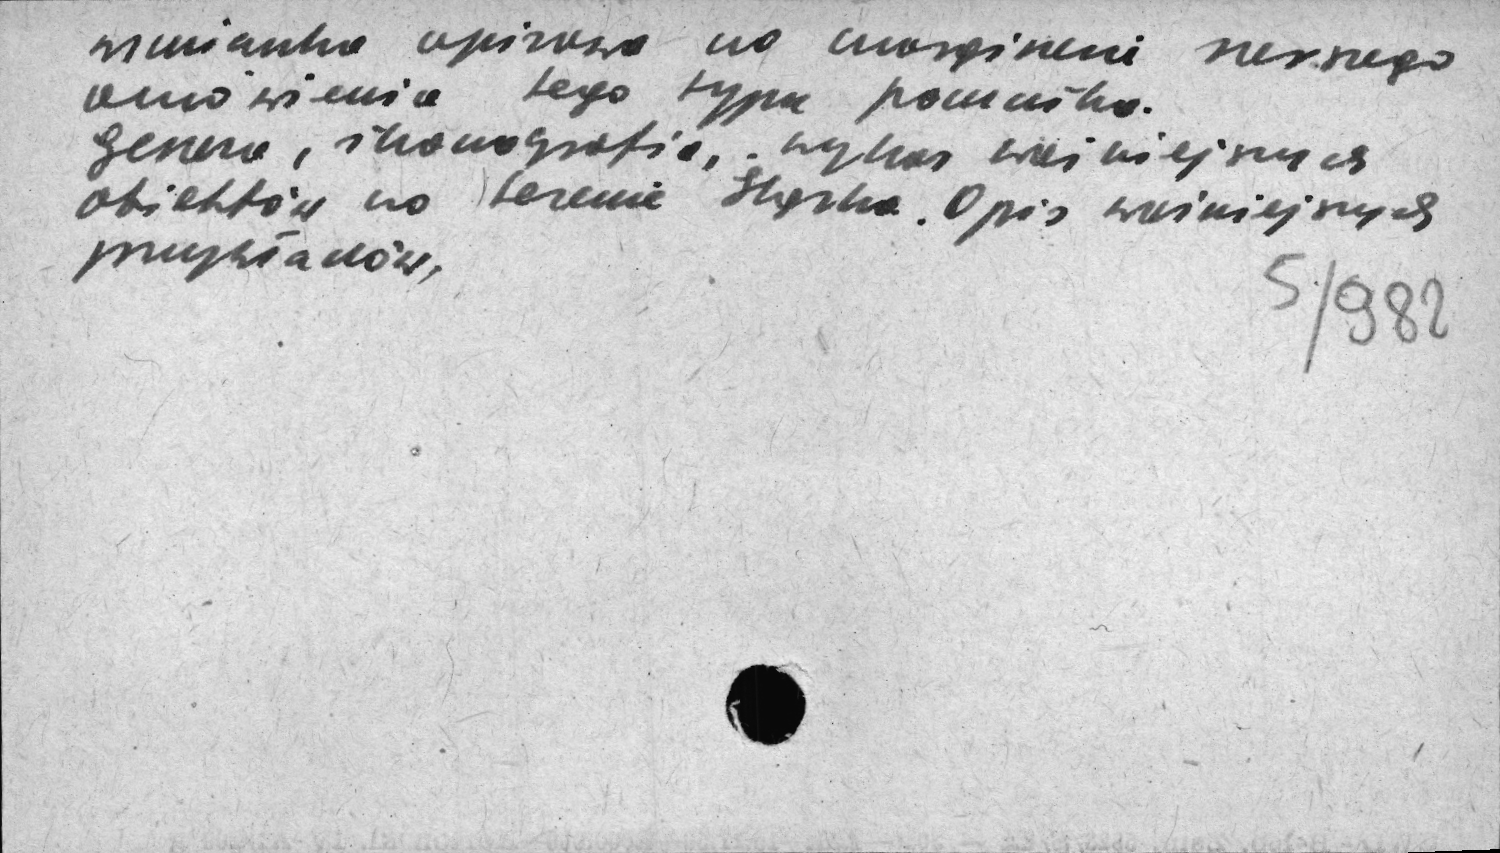 wzmianka opisowa na marginesie szerszego
omówienia tego typu pomnika.
Geneza, ikonografia, wykaz ważniejszych
obiektów na terenie Śląska. Opis ważniejszych
przykładów,
5/982